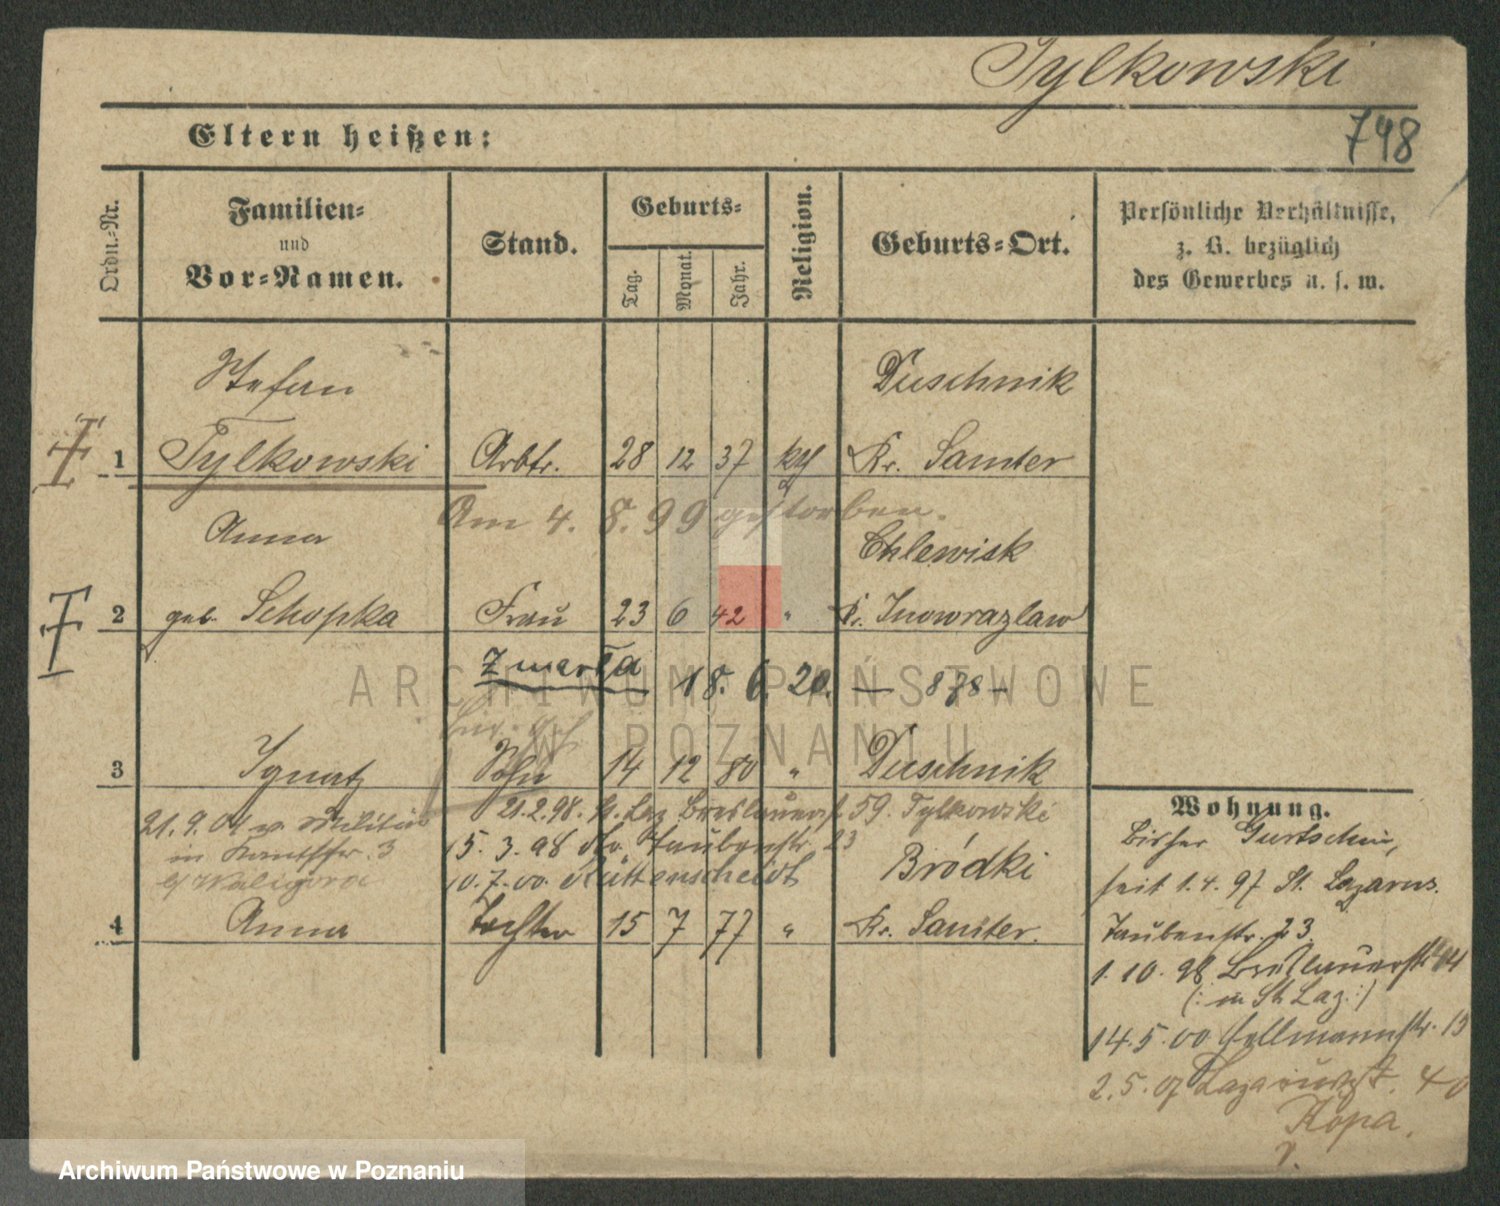 Tylkowski
748
Eltern heißen:
Ordn.-Nr.
Familien-
und
Vor-Namen.
Stand.
Geburts-
Tag.
Monat.
Jahr.
Religion.
Geburts-Ort.
Persönliche Verhältnisse,
z. B. bezüglich
des Gewerbes u. s. w.
Stefan Duschnik
1 Tylkowski Arbtr. 28 12 37 kth Kr. Samter
Am 4. 8. 99 gestorben.
Anna Chlewisk
2 geb. Schopka Frau 23 6 42 " Kr. Inowrazlaw
Zmarła 18. 6. 20. — 878 —
3 Ignatz Sohn 14 12 80 " Duschnik
21.2.98. St. Laz. Breslauerst. 59. Tylkowski
21. 9. 04 v. Militär
15. 3. 98 Taubenstr. 23
in 3
10. 7. 00. Rüttenscheidt
Waligora
Bródki
4 Anna Tochter 15 7 77 " Kr. Samter.
Wohnung.
Bisher Gurtschin,
seit 1.4.97 St. Lazarus.
Taubenstr. 23
1. 10. 98 Breslauerstr 44
(: in St. Laz. :)
14. 5. 00 13
2. 5. 07 40
Kopa.
ARCHIWUM PAŃSTWOWE
W POZNANIU
Archiwum Państwowe w Poznaniu